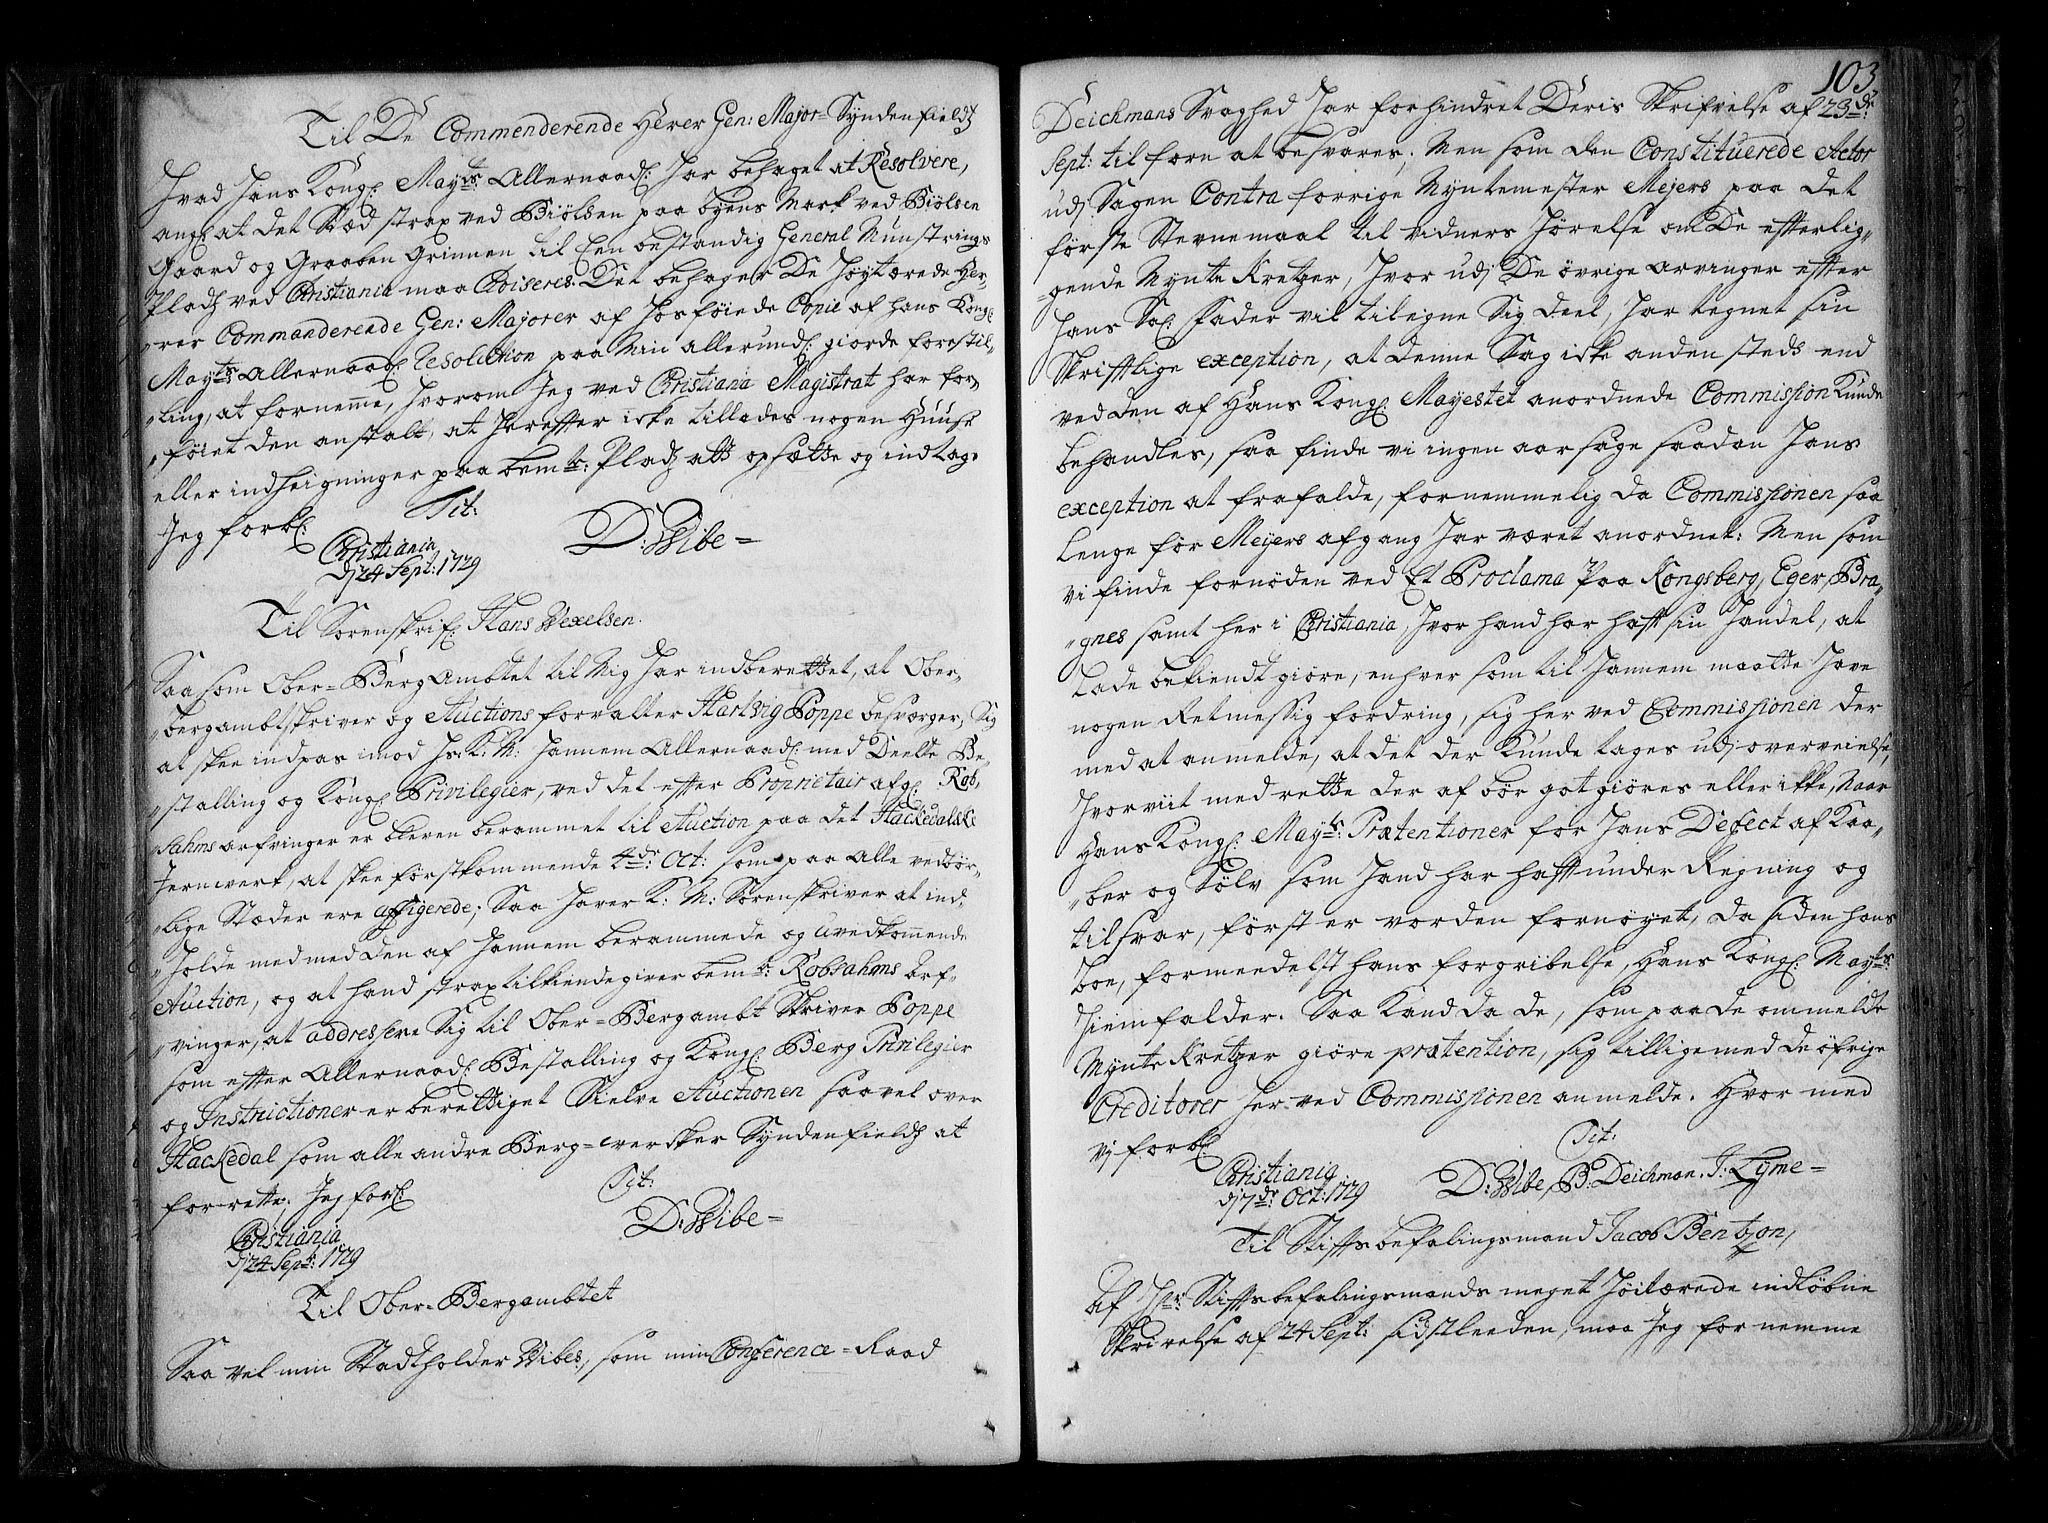 Til De Commenderende Herer Gen: Major= Syndenfields
Hvad Hans Kong: Mayts: Allernaad: har behaget at Resolvere,
ang: at det Stæd strax ved Biölsen paa byens Mark ved Biölsen
Gaard og Graaben Grinnen til Een bestandig General Munstrings
Pladz ved Christiania maa Aviseres. Det behager De Høytærede Her-
„rer Commanderende Gen: Majorer af hosføiede Copie af hans Kong:
Mayts: allernaad: Resolution paa Min allerund: giorde forestil-
„ling, at fornemme, hvorom Jeg ved Christiania Magistrat har for-
„føiet den anstalt, at herefter icke tillades nogen Huuse
eller indheigninger paa bemte: Pladz att opsætte og indtage
Jeg forb: Tit:
Christiania D: Wibe =
dj 24 Sept: 1729
Til Sorenskrif: Hans Wexelsen.
Saasom Ober=BergAmbtet til Mig har indberettet, at Ober-
„bergambtskriver og Auctions forvalter Hartvig Poppe besværger, Sig
at skee indpas imod Hs: K: M: hannem Allernaad: med Deelte Be-
„stalling og Kong: Privilegier, ved det efter Proprietair afg: Rob-
„sahms arfvinger er bleven berammet til Auction paa det Hackedalske
Jernverk, at skee förstkommende 4de: Oct: som paa Alle vedbør-
„lige Stæder ere affigerede; Saa haver K: M: Sorenskriver at ind-
„holde med med den af hannem berammede og uvedkommende
Auction, og at hand strax tilkiendegiver bemte: Robsahms Arf-
„vinger, at addressere Sig til Ober=Bergambt Skriver Poppe
som efter Allernaad: Bestalling og Kong: Berg Privilegier
og Instructioner er berettiget Sielve Auctionen saavel over
Hackedal som alle andre Berg=vercker Syndenfields at
forrette; Jeg forb: Tit:
Christiania D: Wibe =
dj 24 Sept: 1729
Til Ober=Bergambtet
Saa vel min Stadtholder Wibes, som min Conference=Raad
103
Deichmans Svaghed har forhindret Deris Skrifvelse af 23de:
Sept: tilforn at besvares; Men som den Constituerede Actor
udj Sagen Contra forrige Myntemester Meyers paa det
første Stevnemaal til vidners hørelse om De efterlig-
„gende Mynte Kretzer, hvor udj De övrige arvinger efter
hans Sal: Fader vil tilegne Sig deel, har tegnet sin
Skrifftlige exception, at denne Sag icke anden steds end
ved den af Hans Kong: Mayestet anordnede Commission Kunde
behandles, saa finde vi ingen aarsage saadan hans
exception at frafalde, fornemmelig da Commissionen saa
lenge för Meyers afgang har været anordnet: Men som
vi finde fornøden ved Et Proclama paa Kongsberg, Eger, Bra-
„gnes samt her i Christiania, hvor hand har hafft sin handel, at
lade bekiendt giøre, enhver som til hannem maatte have
nogen Retmessig fordring, sig her ved Commissionen der
med at anmelde, at det der Kunde tages udj overveielse,
hvorviit med rette der af bør got giøres eller ikke, Naar
Hans Kong: Mayts: Prætentioner for hans Defect af Kaa-
„ber og Sölv som hand har hafft under Regning og
tilsvar, först er vorden fornøyet, da siden hans
boe, formedelst hans forgribelse, Hans Kong: Mayts:
hiemfalder. Saa Kand da de, som paa de ommeldte
Mynte Kretzer giöre prætention, sig tilligemed de öfrige
Creditorer her ved Commissionen anmelde. Hvor med
vj forb: Tit:
Christiania D: Wibe, B: Deichman. J: Lyme =
dj 7de: Oct: 1729
Til Stiftsbefalingsmand Jacob Bentzon,
Af Hr: Stiftsbefalingsmands meget høitærede indløbne
Skrivelse af 24 Sept: sidstleeden, maa Jeg fornemme